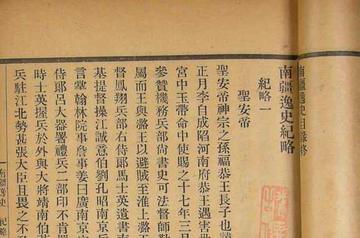 南疆逸史紀略
紀略一
聖安帝
聖安帝神宗之孫福恭王長子也
正月李自成陷河南府恭王遇害世
宮中玉帶命中使賜之十七年三月
參贊機務兵部尚書史可法督師勤
屬而王與潞王以避賊至淮上潞王
督鳳翔兵部右侍郎馬士英遺書南
基提督操江誠意伯劉孔昭南京兵
言掌翰林院事詹事姜曰廣南京吏
侍郎呂大器署禮兵二部印不肯署
時士英握兵於外與大將靖南伯
兵駐江北勢甚張大臣且畏之不
南疆逸史
紀略